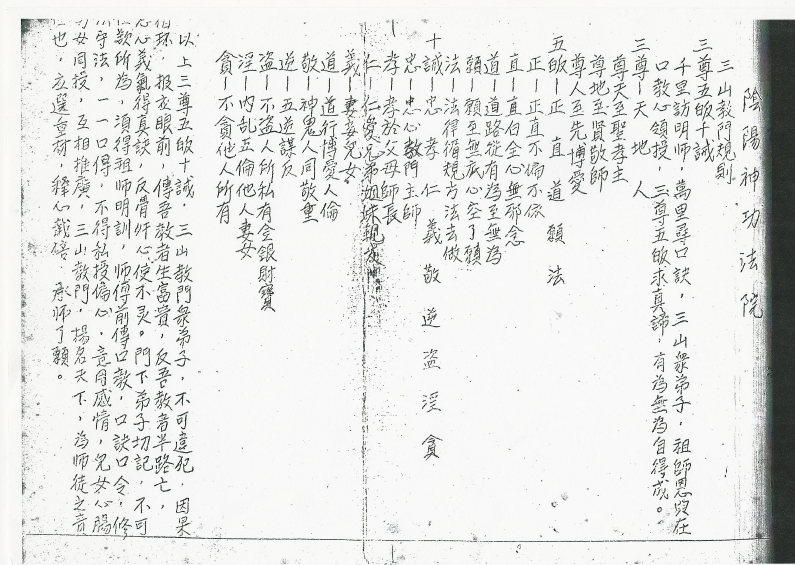 陰陽神功法院
三山教門規則
三尊五皈十誡
千里訪明師，萬里尋口訣，三山衆弟子，祖師恩皈在
口教心領授，三尊五皈求真諦，有為無為自得成。
三尊－天 地 人
尊天至聖孝主
尊地至賢敬師
尊人至先博愛
五皈－正 直 道 願 法
正－正直不偏不依
直－直白全心無邪念
道－道路從有為至無為
願－願至無疚心空了願
法－法律循規方法去做
十誡－忠 孝 仁 義 敬 逆 盗 淫 貪
忠－忠心教門主師
孝－孝於父母師長
仁－仁愛兄弟姐妹親
義－妻妾兒女
道－道行博愛人倫
敬－神鬼人同敬重
逆－五逆謀反
盗－不盗人所私有金銀財寶
淫－内乱五倫他人妻女
貪－不貪他人所有
以上三尊五皈十誡，三山教門衆弟子，不可違犯，因果
循环，报應眼前，傳吾教者生富貴，反吾教者半路亡，
忠心義氣得真訣，反骨奸心使不灵。門下弟子切記，不可
欲所為，須得祖師明訓，師傅前傳口教，口訣口令，修
守法，一一口得，不得私授偏心，意同感情，兒女心腸
女同授，互相推廣，三山教門，揚名天下，為師徒之音
也，应選苗材，釋心栽倍，承師了願。